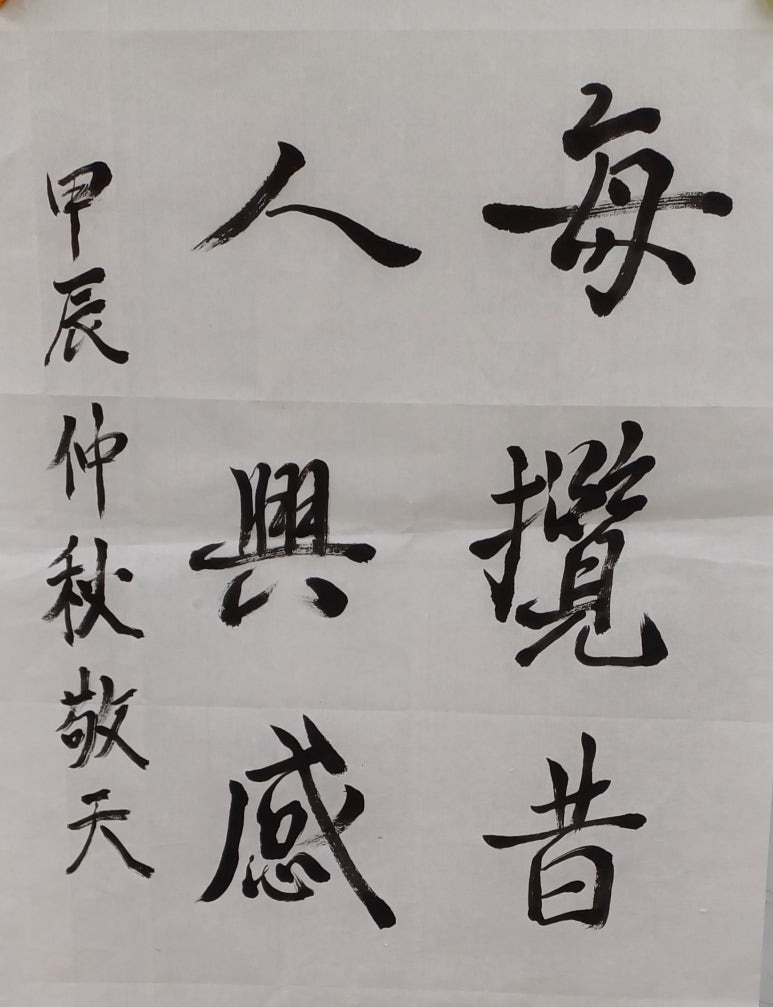 每攬昔
人興感
甲辰仲秋敬天